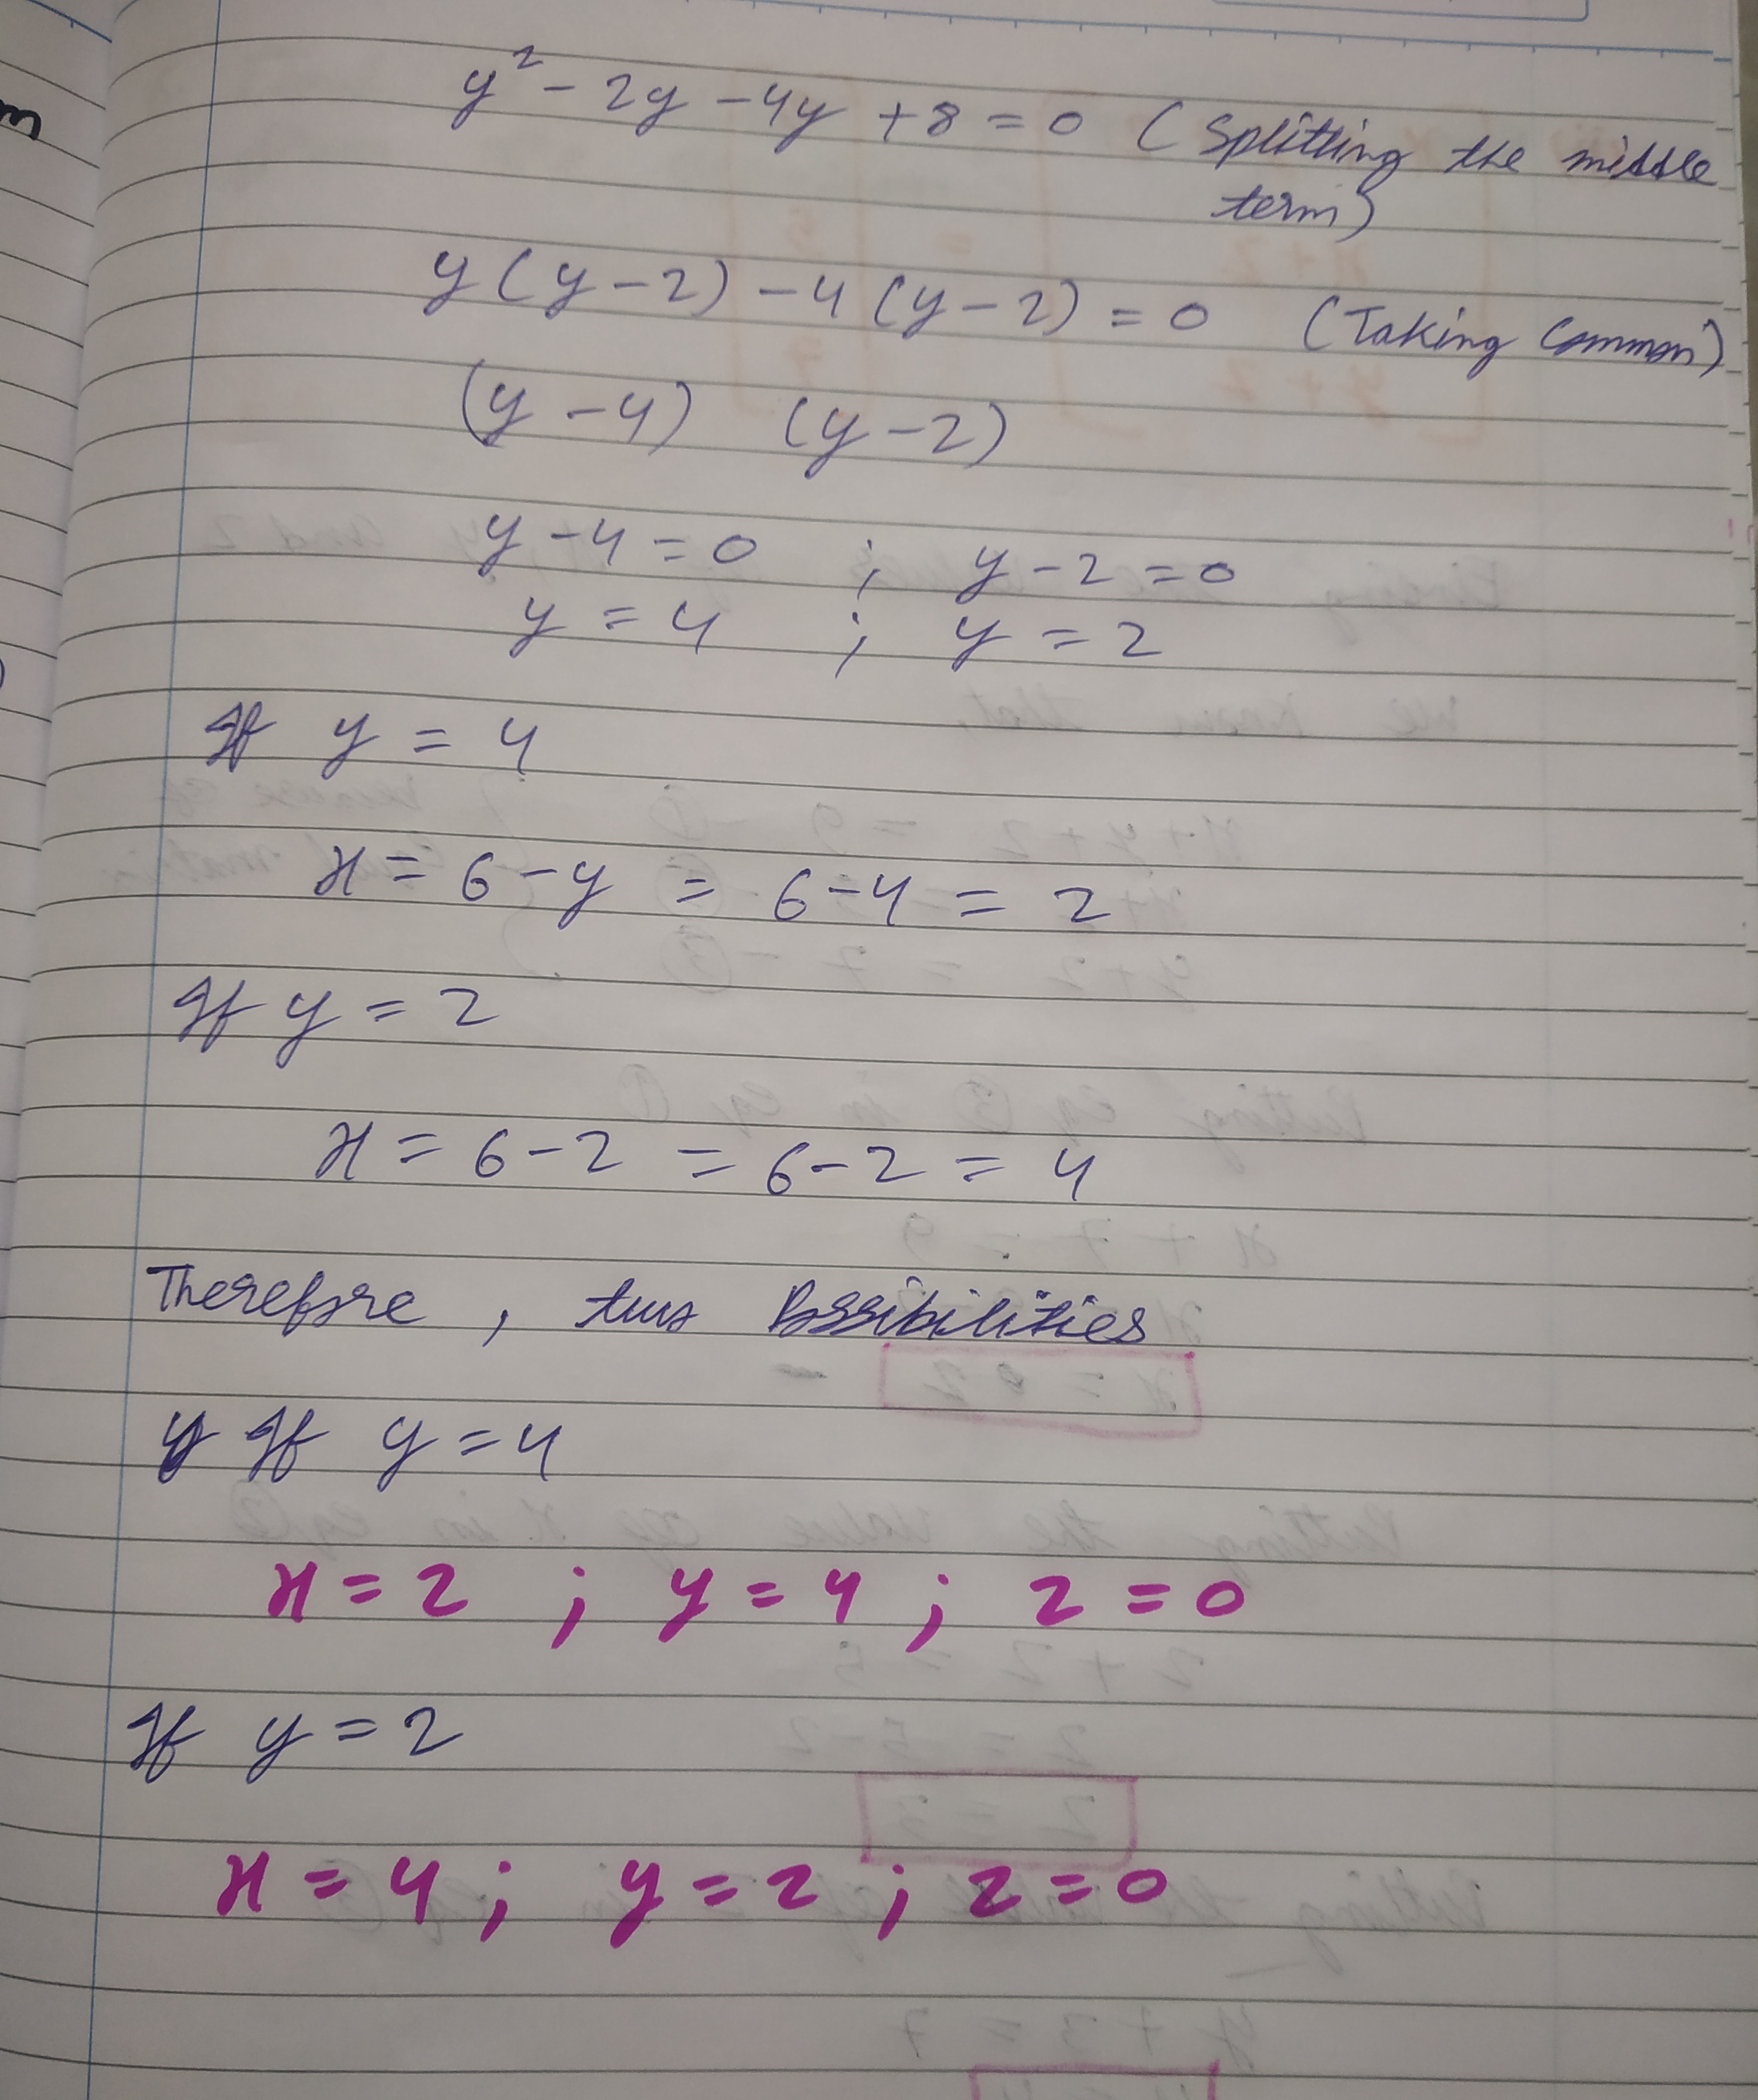 y² - 2y - 4y + 8 = 0 (Splitting the middle
term)
y(y-2) - 4(y-2) = 0 (Taking common)
(y-4) (y-2)
y-4=0 ; y-2=0
y = 4 ; y = 2
If y = 4
x = 6-y = 6-4 = 2
If y = 2
x = 6-2 = 6-2 = 4
Therefore, two Possibilities
If y = 4
x = 2 ; y = 4 ; z = 0
If y = 2
x = 4 ; y = 2 ; z = 0